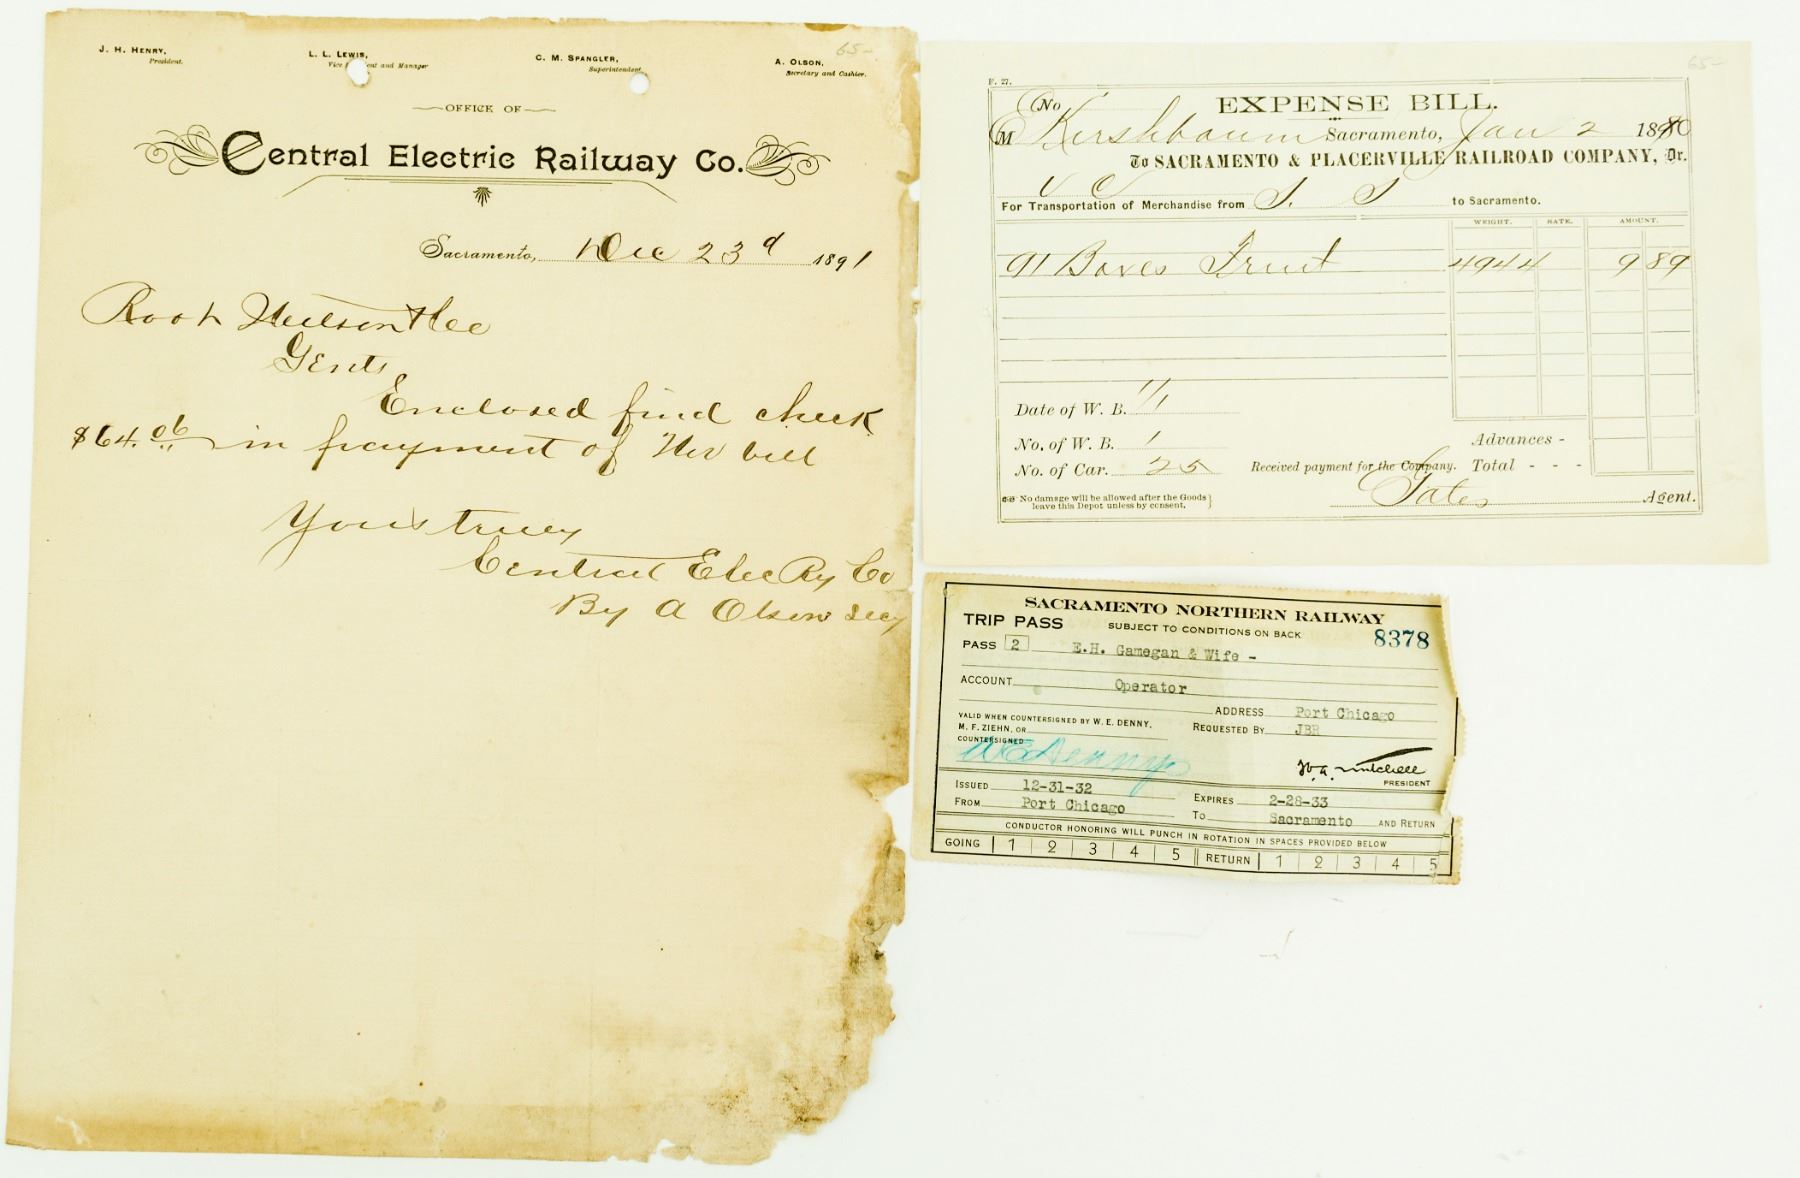 65-
J. H. HENRY,
President.
L. L. LEWIS,
Vice President and Manager
C. M. SPANGLER,
Superintendent.
A. OLSON,
Secretary and Cashier.
OFFICE OF
Central Electric Railway Co.
Sacramento, Dec 23d 1891
Gents
Enclosed find check
$64.06 in payment of Nov bill
Yours truly
Central Elec Ry Co
By A Olson Secy
65-
F. 27.
No
EXPENSE BILL.
M Kirshbaum Sacramento, Jan 2 1880
To SACRAMENTO & PLACERVILLE RAILROAD COMPANY, Dr.
For Transportation of Merchandise from S. S to Sacramento.
WEIGHT. RATE. AMOUNT.
91 Boxes Fruit 4944 9 89
Date of W. B. 1/1
No. of W. B. 1
Advances -
No. of Car. 25 Received payment for the Company. Total - - -
No damage will be allowed after the Goods
leave this Depot unless by consent.
Agent.
SACRAMENTO NORTHERN RAILWAY
TRIP PASS SUBJECT TO CONDITIONS ON BACK 8378
PASS 2 E.H. Gamegan & Wife -
ACCOUNT Operator
ADDRESS Port Chicago
VALID WHEN COUNTERSIGNED BY W. E. DENNY,
M. F. ZIEHN, OR
REQUESTED BY JBR
COUNTERSIGNED
W E Denny
W. A. Mitchell
PRESIDENT
ISSUED 12-31-32 EXPIRES 2-28-33
FROM Port Chicago TO Sacramento AND RETURN
CONDUCTOR HONORING WILL PUNCH IN ROTATION IN SPACES PROVIDED BELOW
GOING 1 2 3 4 5 RETURN 1 2 3 4 5